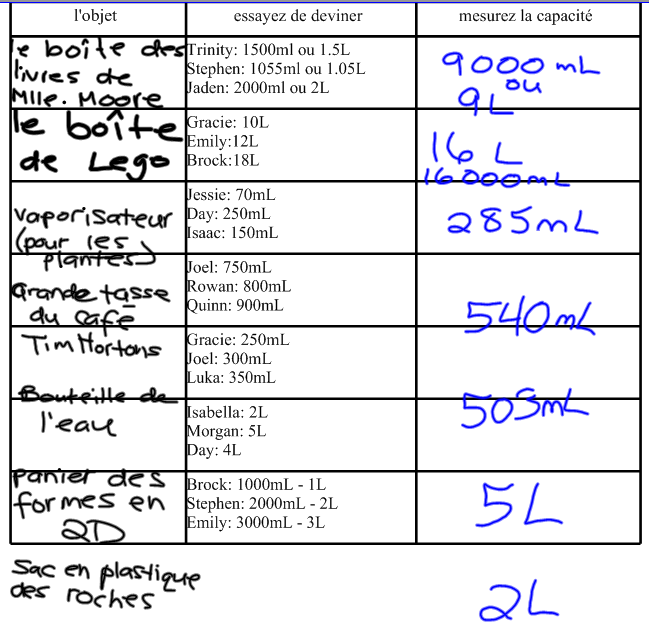 l'objet
essayez de deviner
mesurez la capacité
le boîte des
livres de
Mlle. Moore
Trinity: 1500ml ou 1.5L
Stephen: 1055ml ou 1.05L
Jaden: 2000ml ou 2L
9000 mL
ou
9L
le boîte
de Lego
Gracie: 10L
Emily:12L
Brock:18L
16 L
16 000mL
vaporisateur
(pour les
plantes)
Jessie: 70mL
Day: 250mL
Isaac: 150mL
285mL
Grande tasse
du café
Tim Hortons
Joel: 750mL
Rowan: 800mL
Quinn: 900mL
540mL
Gracie: 250mL
Joel: 300mL
Luka: 350mL
Bouteille de
l'eau
Isabella: 2L
Morgan: 5L
Day: 4L
505mL
panier des
formes en
2D
Brock: 1000mL - 1L
Stephen: 2000mL - 2L
Emily: 3000mL - 3L
5L
Sac en plastique
des roches
2L